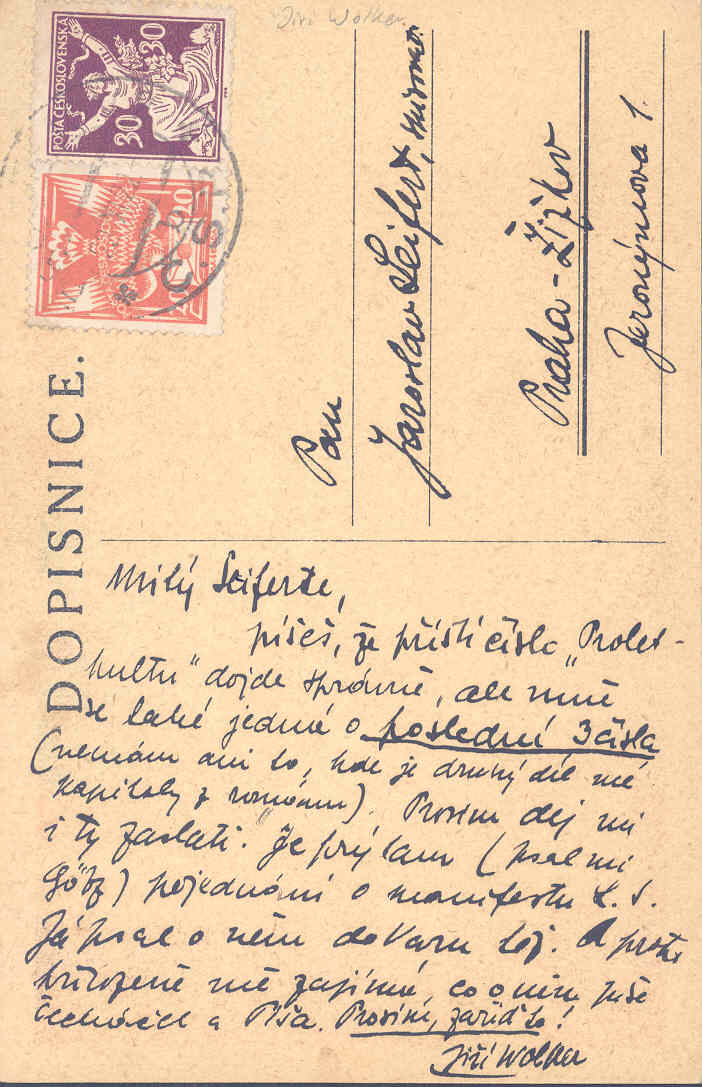 Jiří Wolker.
POŠTA ČESKOSLOVENSKÁ
30 30
20
DOPISNICE.
Pan
Jaroslav Seifert,
Praha - Žižkov
Jeronýmova 1.
Milý Seiferte,
píšeš, že příští číslo „Prolet-
kultu“ dojde správně, ale mně
se také jedná o poslední 3 čísla
(nemám ani to, kde je druhý díl mé
kapitoly z románu). Prosím dej mi
i ty zaslati. Je prý tam (psal mi
Götz) pojednání o manifestu L. S.
Já psal o něm do Varu též. A proto
přirozeně mě zajímá, co o něm píše
Čecháček a Píša. Prosím, zařiď to!
Jiří Wolker